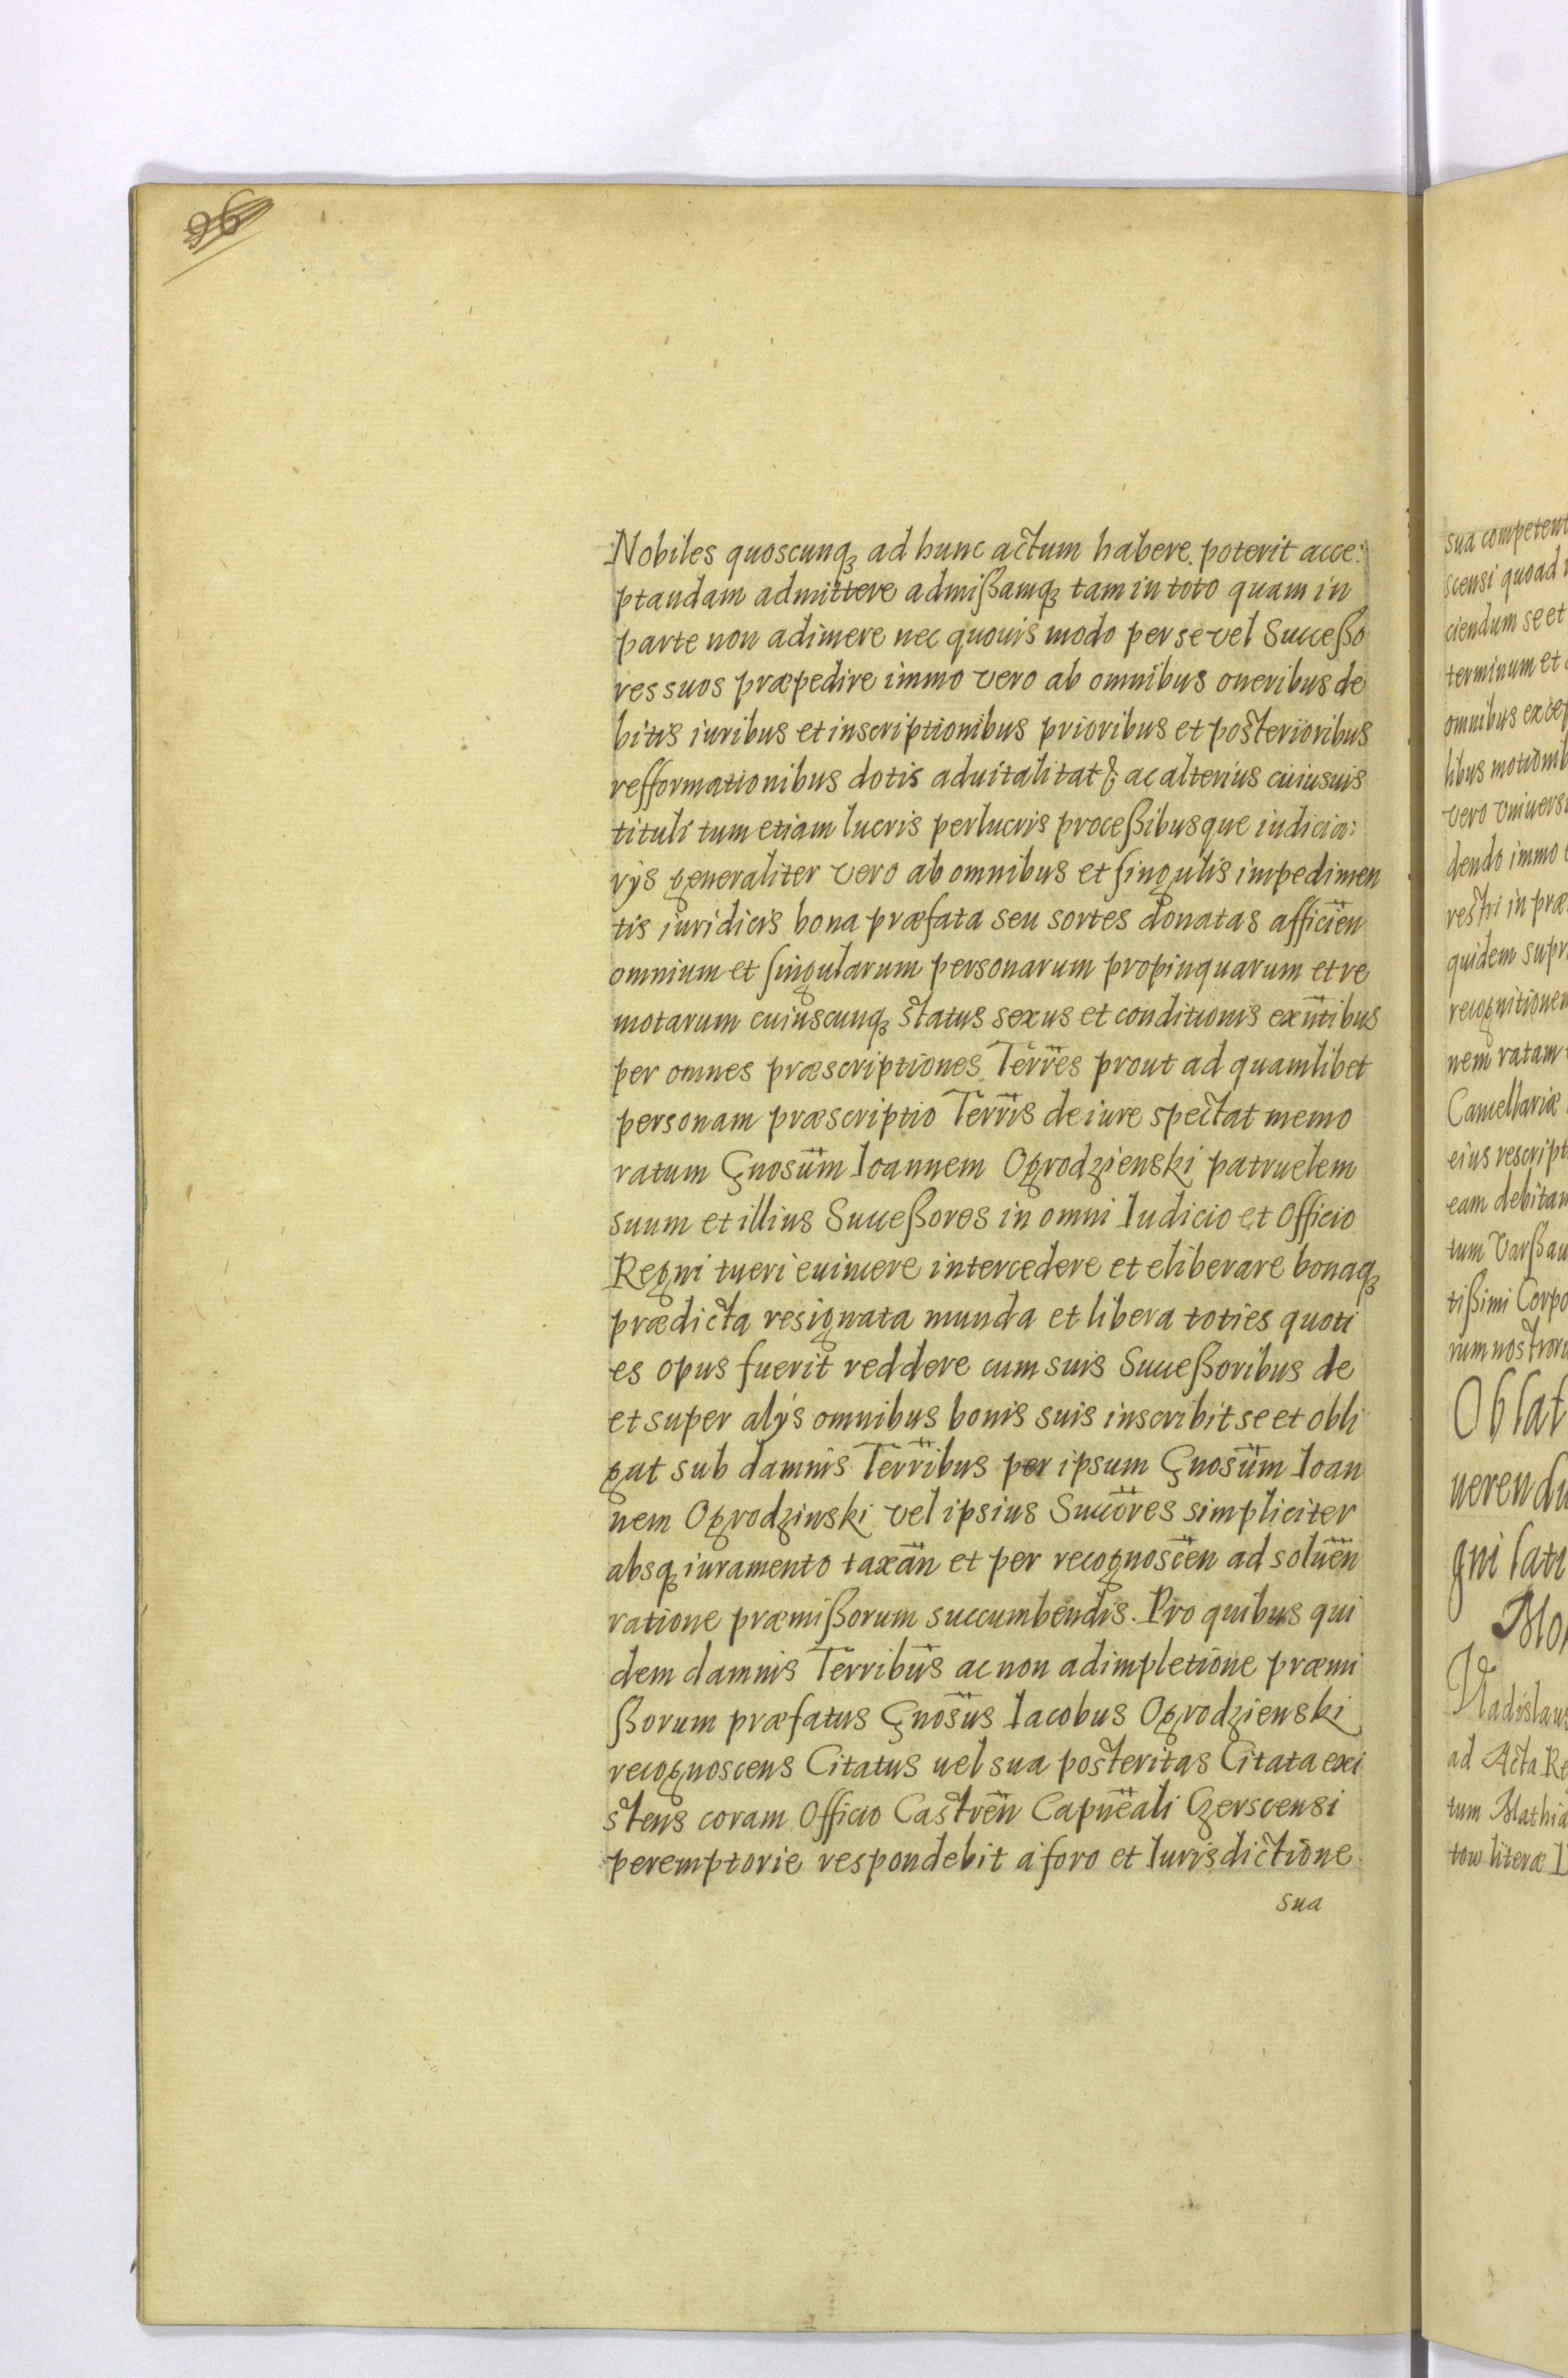 96
Nobiles quoscunqȝ ad hunc actum habere poterit acce:
ptandam admittere admißamqȝ tam in toto quam in
parte non adimere nec quouis modo per se vel Succeßo
res suos præpedire immo vero ab omnibus oneribus de
bitis iuribus et inscriptionibus prioribus et posterioribus
refformationibus dotis aduitalitatꝭ ac alterius cuiusuis
tituli tum etiam lucris perlucris proceßibusque iudicia:
rÿs generaliter vero ab omnibus et singulis impedimen
tis iuridicis bona præfata seu sortes donatas afficien̄
omnium et singularum personarum propinquarum et re
motarum cuiuscunqȝ status sexus et conditionis exn̄tibus
per omnes præscriptiones Terr̄es prout ad quamlibet
personam præscriptio Terr̄is de iure spectat memo
ratum Gnosūm Ioannem Ogrodzienski patruelem
suum et illius Succeßores in omni Iudicio et Officio
Regni tueri euincere intercedere et eliberare bonaqȝ
prædicta resignata munda et libera toties quoti
es opus fuerit reddere cum suis Succeßoribus de
et super alÿs omnibus bonis suis inscribit se et obli
gat sub damnis Terr̄ibus per ipsum Gnosūm Ioan
nem Ogrodzinski vel ipsius Succōres simpliciter
absqȝ iuramento taxān et per recognoscēn ad soluēn
ratione præmißorum succumbendis. Pro quibus qui
dem damnis Terribūs ac non adimpletione præmi
ßorum præfatus Gnosūs Iacobus Ogrodzienski
recognoscens Citatus uel sua posteritas Citata exi
stens coram Officio Castrēn Capnēali Czerscensi
peremptorie respondebit a foro et Iurisdictione
sua
sua competent
scensi quoad
ciendum se et
terminum et
omnibus excep
libus motionib
vero vniuers
dendo immo
restri in præ
quidem supr
recognitionem
nem ratam
Cancellariæ
eius rescript
eam debitam
tum Varßau
tißimi Corpo
rum nostroru
Oblat
uerendu
gni lati
Mo
Vladislaus
ad Acta Re
tum Mathia
tow literæ